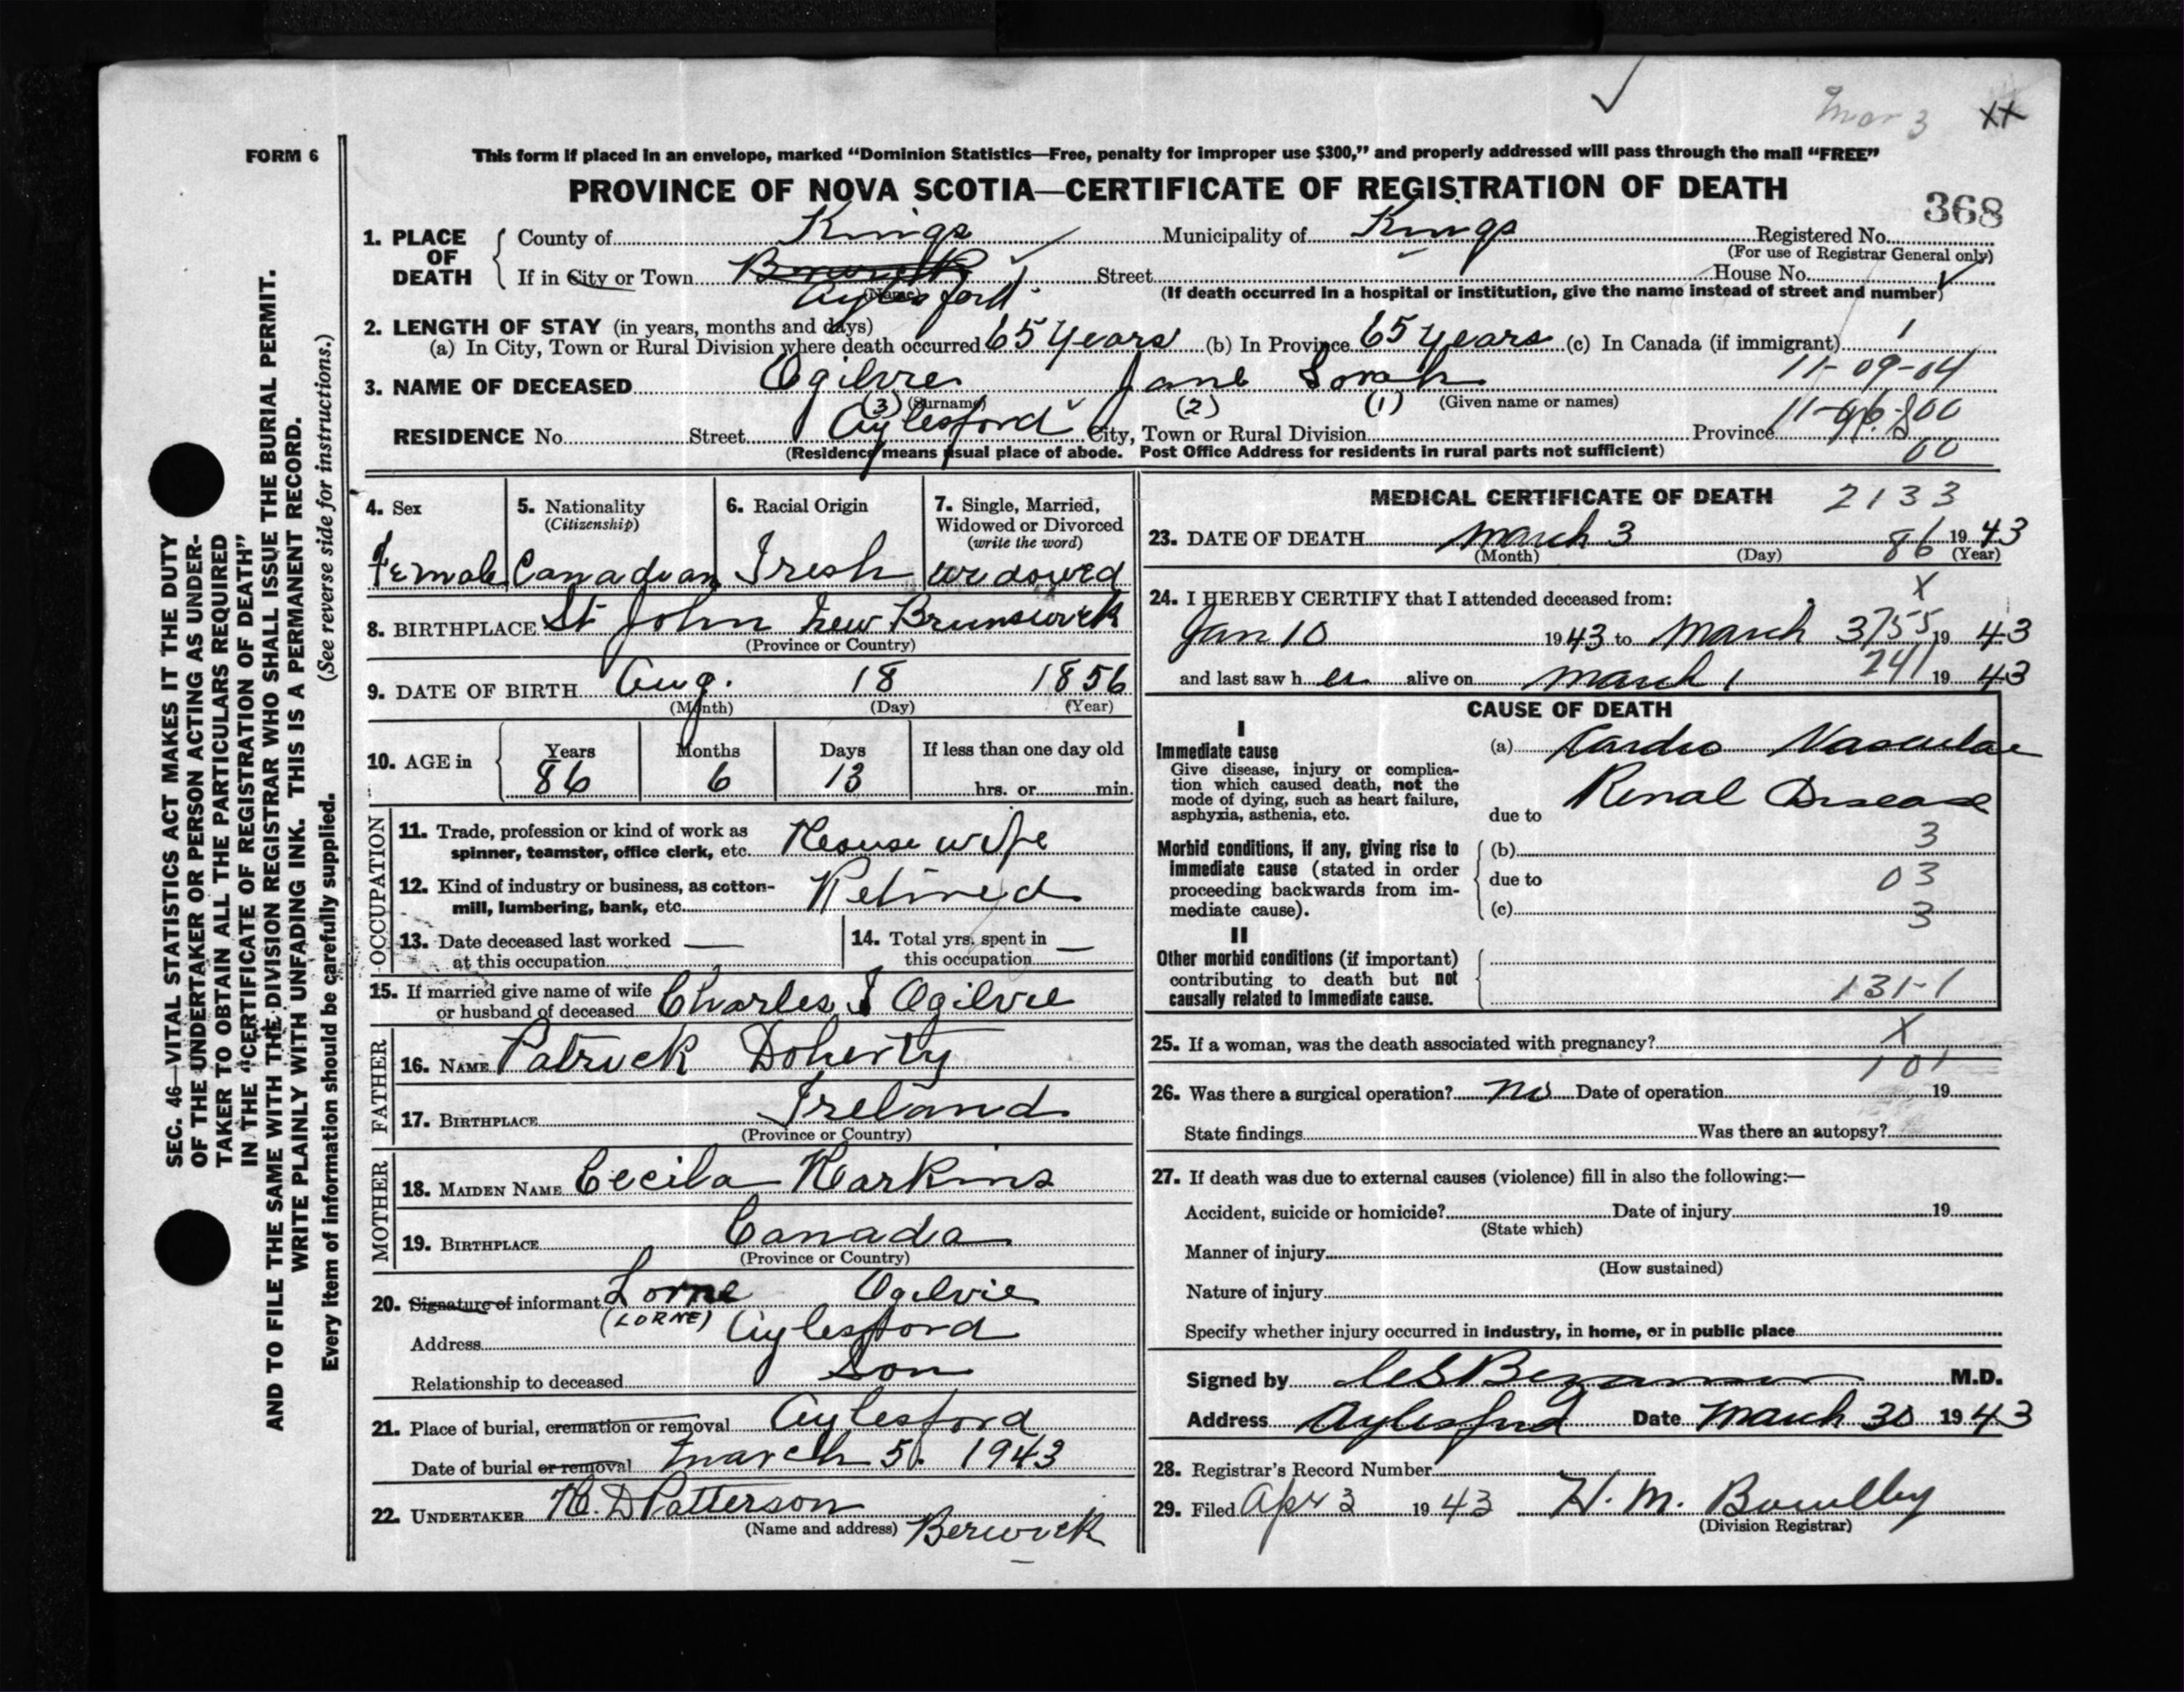 Mar 3 XX
FORM 6
This form if placed in an envelope, marked “Dominion Statistics—Free, penalty for improper use $300,” and properly addressed will pass through the mail “FREE”
PROVINCE OF NOVA SCOTIA—CERTIFICATE OF REGISTRATION OF DEATH
368
1. PLACE OF DEATH
County of Kings Municipality of Kings Registered No.
(For use of Registrar General only)
If in City or Town Berwick Street House No.
(Name) Aylesford (If death occurred in a hospital or institution, give the name instead of street and number)
2. LENGTH OF STAY (in years, months and days)
(a) In City, Town or Rural Division where death occurred 65 years (b) In Province 65 years (c) In Canada (if immigrant) 1
3. NAME OF DECEASED Ogilvie Jane Sorah 11-09-04
(3) (Surname) (2) (1) (Given name or names)
RESIDENCE No. Street Aylesford City, Town or Rural Division Province
(Residence means usual place of abode. Post Office Address for residents in rural parts not sufficient) 00
4. Sex
Female
5. Nationality
(Citizenship)
Canadian
6. Racial Origin
Iresh
7. Single, Married,
Widowed or Divorced
(write the word)
widowed
8. BIRTHPLACE St John New Brunswick
(Province or Country)
9. DATE OF BIRTH Aug. 18 1856
(Month) (Day) (Year)
10. AGE in
Years Months Days If less than one day old
86 6 13 hrs. or min.
OCCUPATION
11. Trade, profession or kind of work as
spinner, teamster, office clerk, etc. House wife
12. Kind of industry or business, as cotton-
mill, lumbering, bank, etc. Retired
13. Date deceased last worked —
at this occupation
14. Total yrs. spent in —
this occupation
15. If married give name of wife
or husband of deceased Charles I Ogilvie
FATHER
16. NAME Patrick Doherty
17. BIRTHPLACE Ireland
(Province or Country)
MOTHER
18. MAIDEN NAME Cecila Harkins
19. BIRTHPLACE Canada
(Province or Country)
20. Signature of informant Lorne Ogilvie
(LORNE)
Address Aylesford
Relationship to deceased Son
21. Place of burial, cremation or removal Aylesford
Date of burial or removal March 5. 1943
22. UNDERTAKER H. D Patterson
(Name and address) Berwick
MEDICAL CERTIFICATE OF DEATH 2133
23. DATE OF DEATH March 3 86 1943
(Month) (Day) (Year)
X
24. I HEREBY CERTIFY that I attended deceased from:
Jan 10 1943 to March 3 1943
and last saw her alive on March 1 241 1943
CAUSE OF DEATH
I
Immediate cause
Give disease, injury or complica-
tion which caused death, not the
mode of dying, such as heart failure,
asphyxia, asthenia, etc.
(a) Cardio Vascular
Renal Disease
due to
Morbid conditions, if any, giving rise to
immediate cause (stated in order
proceeding backwards from im-
mediate cause).
(b) 3
due to 03
(c) 3
II
Other morbid conditions (if important)
contributing to death but not
causally related to immediate cause.
131-1
25. If a woman, was the death associated with pregnancy? X
101
26. Was there a surgical operation? no Date of operation 19
State findings Was there an autopsy?
27. If death was due to external causes (violence) fill in also the following:—
Accident, suicide or homicide? Date of injury 19
(State which)
Manner of injury
(How sustained)
Nature of injury
Specify whether injury occurred in industry, in home, or in public place
Signed by M.D.
Address Aylesford Date March 30 1943
28. Registrar's Record Number
29. Filed Apr 3 1943 H. M.
(Division Registrar)
SEC. 46—VITAL STATISTICS ACT MAKES IT THE DUTY
OF THE UNDERTAKER OR PERSON ACTING AS UNDER-
TAKER TO OBTAIN ALL THE PARTICULARS REQUIRED
IN THE “CERTIFICATE OF REGISTRATION OF DEATH”
AND TO FILE THE SAME WITH THE DIVISION REGISTRAR WHO SHALL ISSUE THE BURIAL PERMIT.
WRITE PLAINLY WITH UNFADING INK. THIS IS A PERMANENT RECORD.
Every item of information should be carefully supplied. (See reverse side for instructions.)